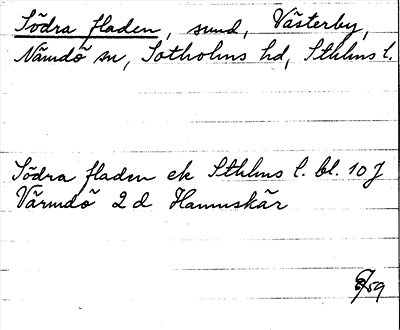 Södra fladen, sund, Västerby,
Nämdö sn, Sotholms hd, Sthlms l.
Södra fladen ek Sthlms l. bl. 10 J
Värmdö 2 d Hamnskär
59